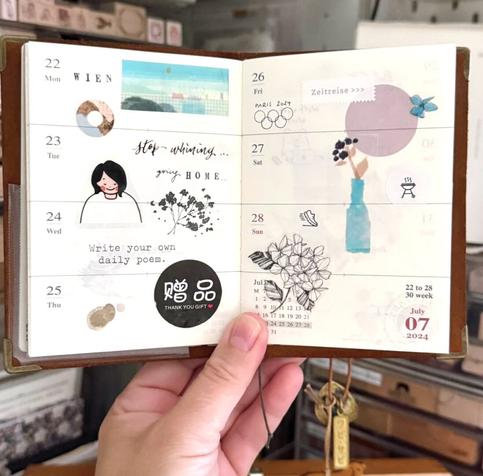 22
Mon
WIEN
23
Tue
stop-whining...
going HOME..
24
Wed
Write your own
daily poem.
25
Thu
赠品
THANK YOU GIFT
26
Fri
PARIS 2024
Zeitreise >>>
27
Sat
28
Sun
22 to 28
30 week
July
07
2024